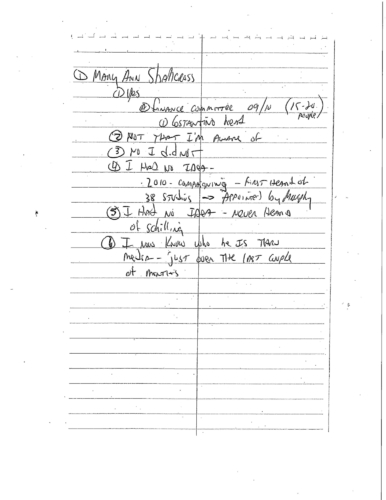 ① Mary Ann Shallcross
① Yes
② Finance Committee 09/10 (15-20 people)
① Costantino head
② NOT That I'm Aware of
③ NO I did NOT
④ I Had NO IDEA -
· 2010 - campaigning - First Heard of
38 Studios → Appointed by Murphy
⑤ I Had NO IDEA - never Heard
of Schilling
⑥ I now know who he IS Thru
media - just over THE last couple
of months